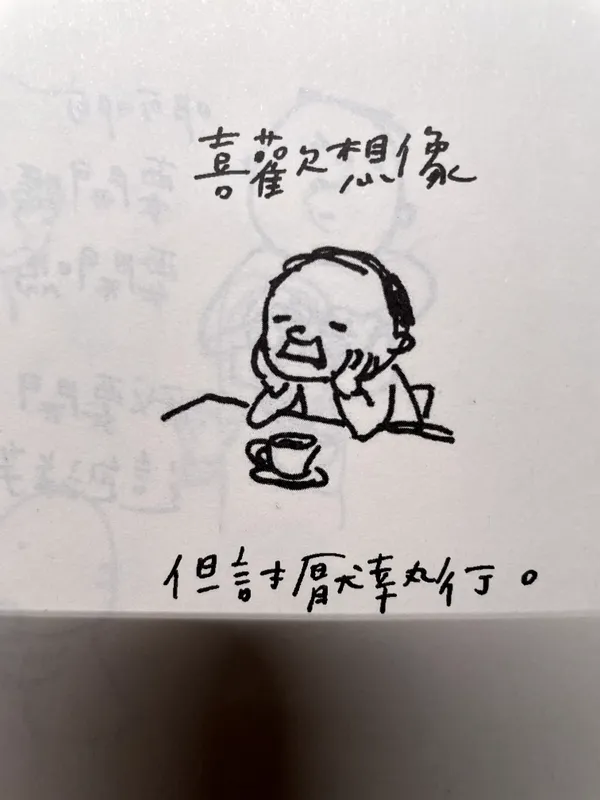 喜歡想像
但討厭執行。